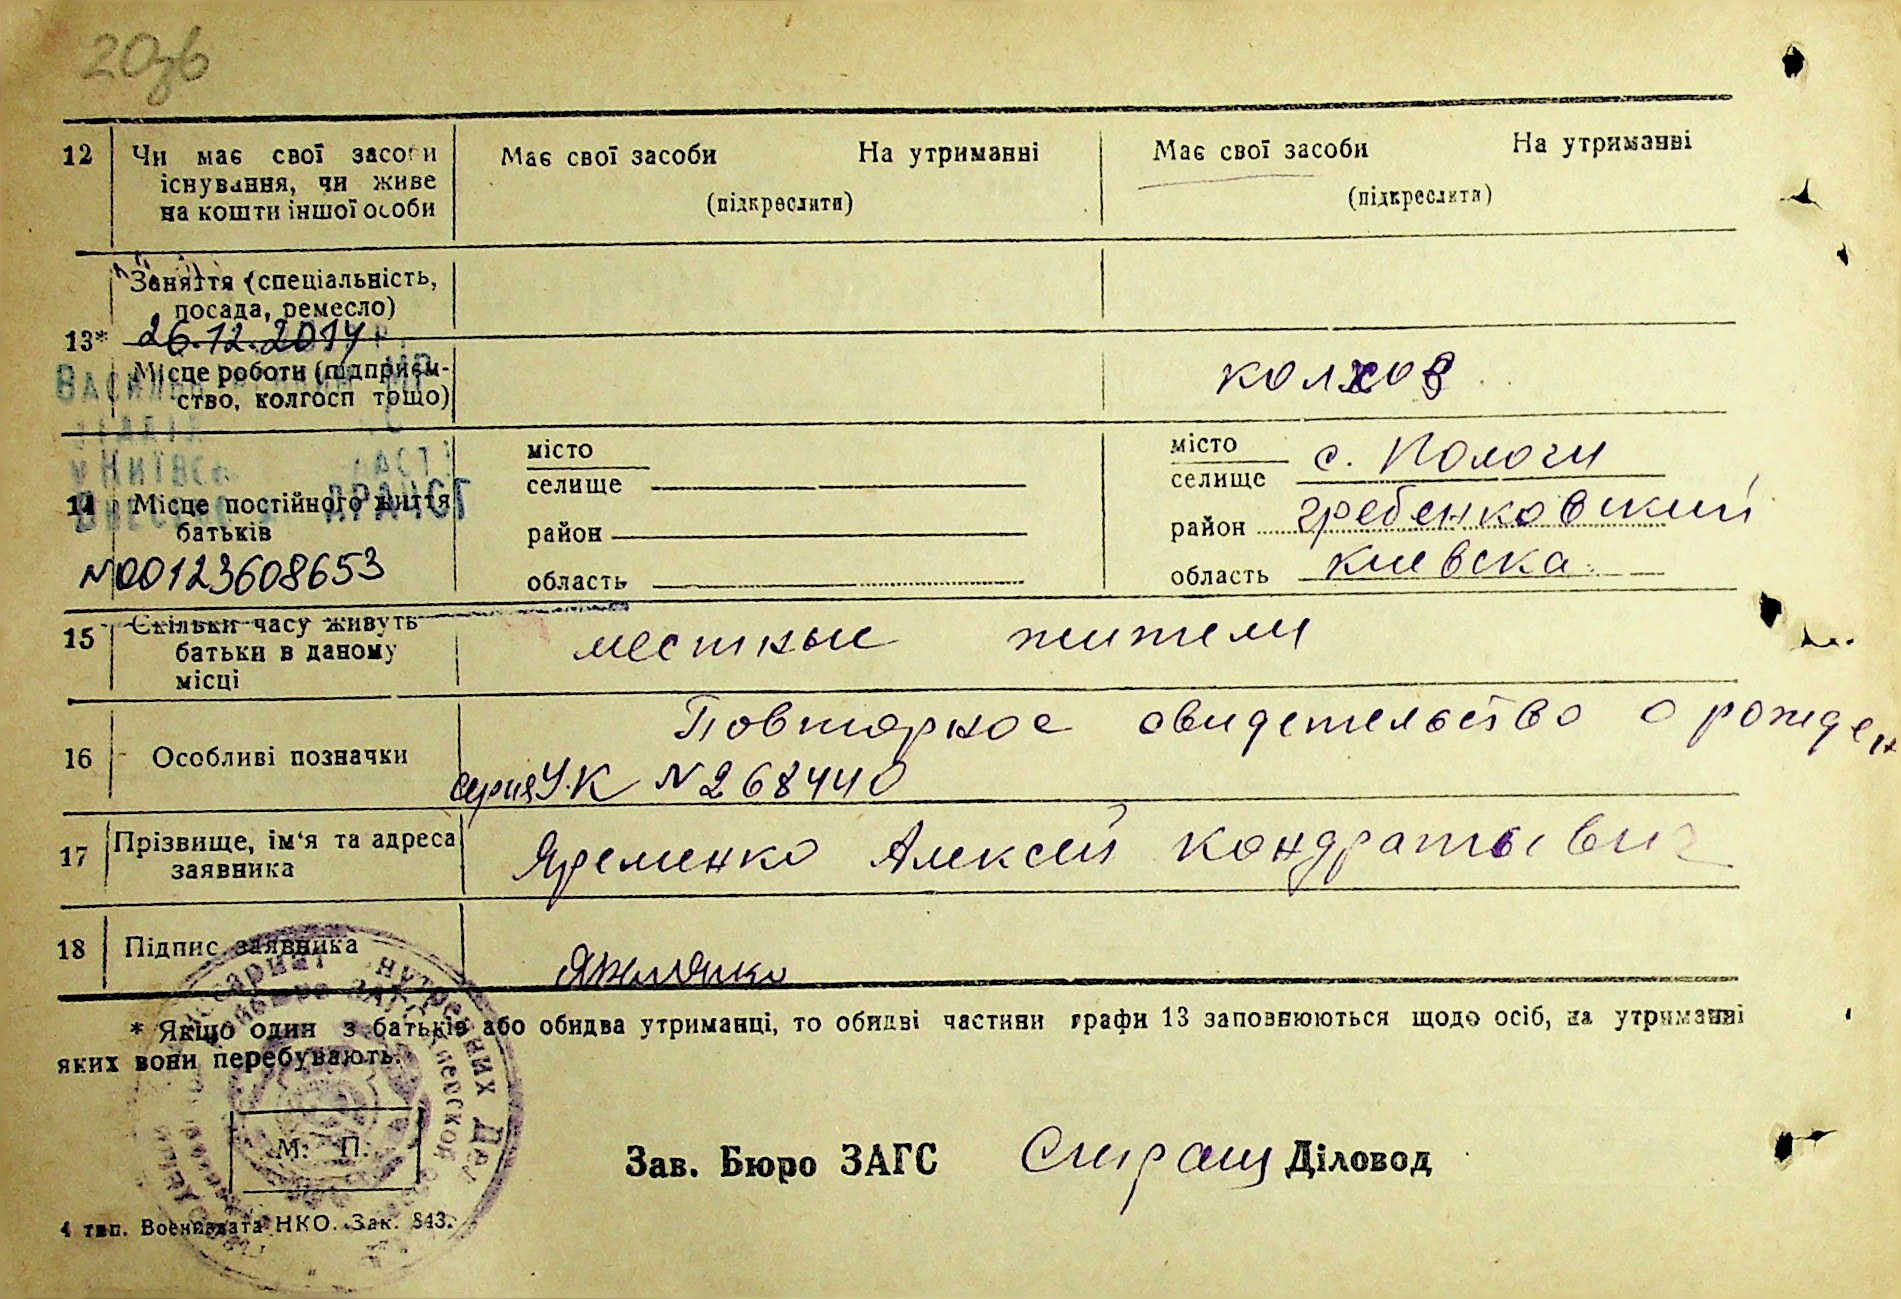 12 Чи має свої засоби Має свої засоби На утриманні Має свої засоби На утриманні
існування, чи живе (підкреслити) (підкреслити)
на кошти іншої особи
Заняття (спеціальність,
посада, ремесло)
13* 26.12.2014
Місце роботи (підприєм- колхоз
ство, колгосп тощо)
місто місто с. Пологи
селище селище
14 Місце постійного життя район район гребенковский
батьків
N00123608653 область область киевска
15 Скільки часу живуть местные жители
батьки в даному
місці
Повторное свидетельство о рожден
16 Особливі позначки
серия УК N 268440
17 Прізвище, ім'я та адреса Яременко Алексей Кондратьевич
заявника
18 Підпис заявника
* Якщо один з батьків або обидва утриманці, то обидві частини графи 13 заповнюються щодо осіб, на утриманні
яких вони перебувають.
М. П.
Зав. Бюро ЗАГС Діловод
4 тип. Воениздата НКО. Зак. 843.